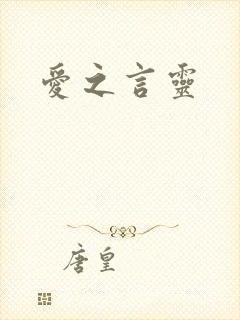 愛之言靈
唐皇